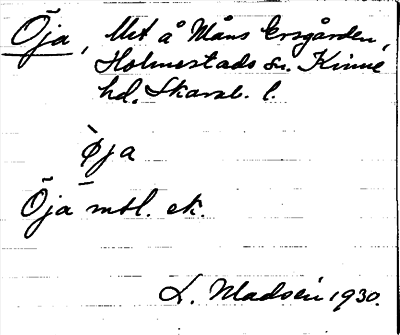 Öja, Mt å Måns Ersgården,
Holmestads sn. Kinne
hd. Skarab. l.
ø̀ja
Öja mtl. ek.
L. Madsén 1930.